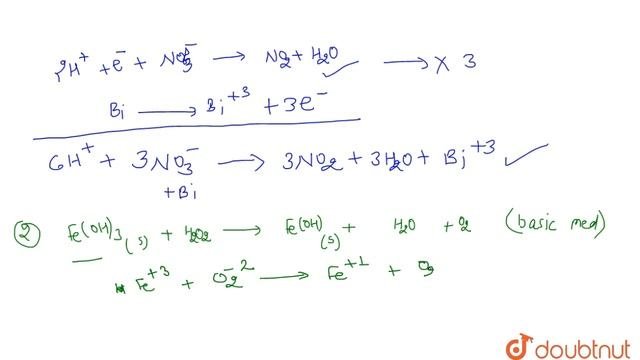 2H⁺ + e⁻ + NO₃⁻ → NO₂ + H₂O ✓ → X 3
Bi → Bi⁺³ + 3e⁻
6H⁺ + 3NO₃⁻ → 3NO₂ + 3H₂O + Bi⁺³ ✓
+ Bi
② Fe(OH)₃(s) + H₂O₂ → Fe(OH)(s) + H₂O + O₂ (basic med)
Fe⁺³ + O₂⁻² → Fe⁺¹ +
doubtnut